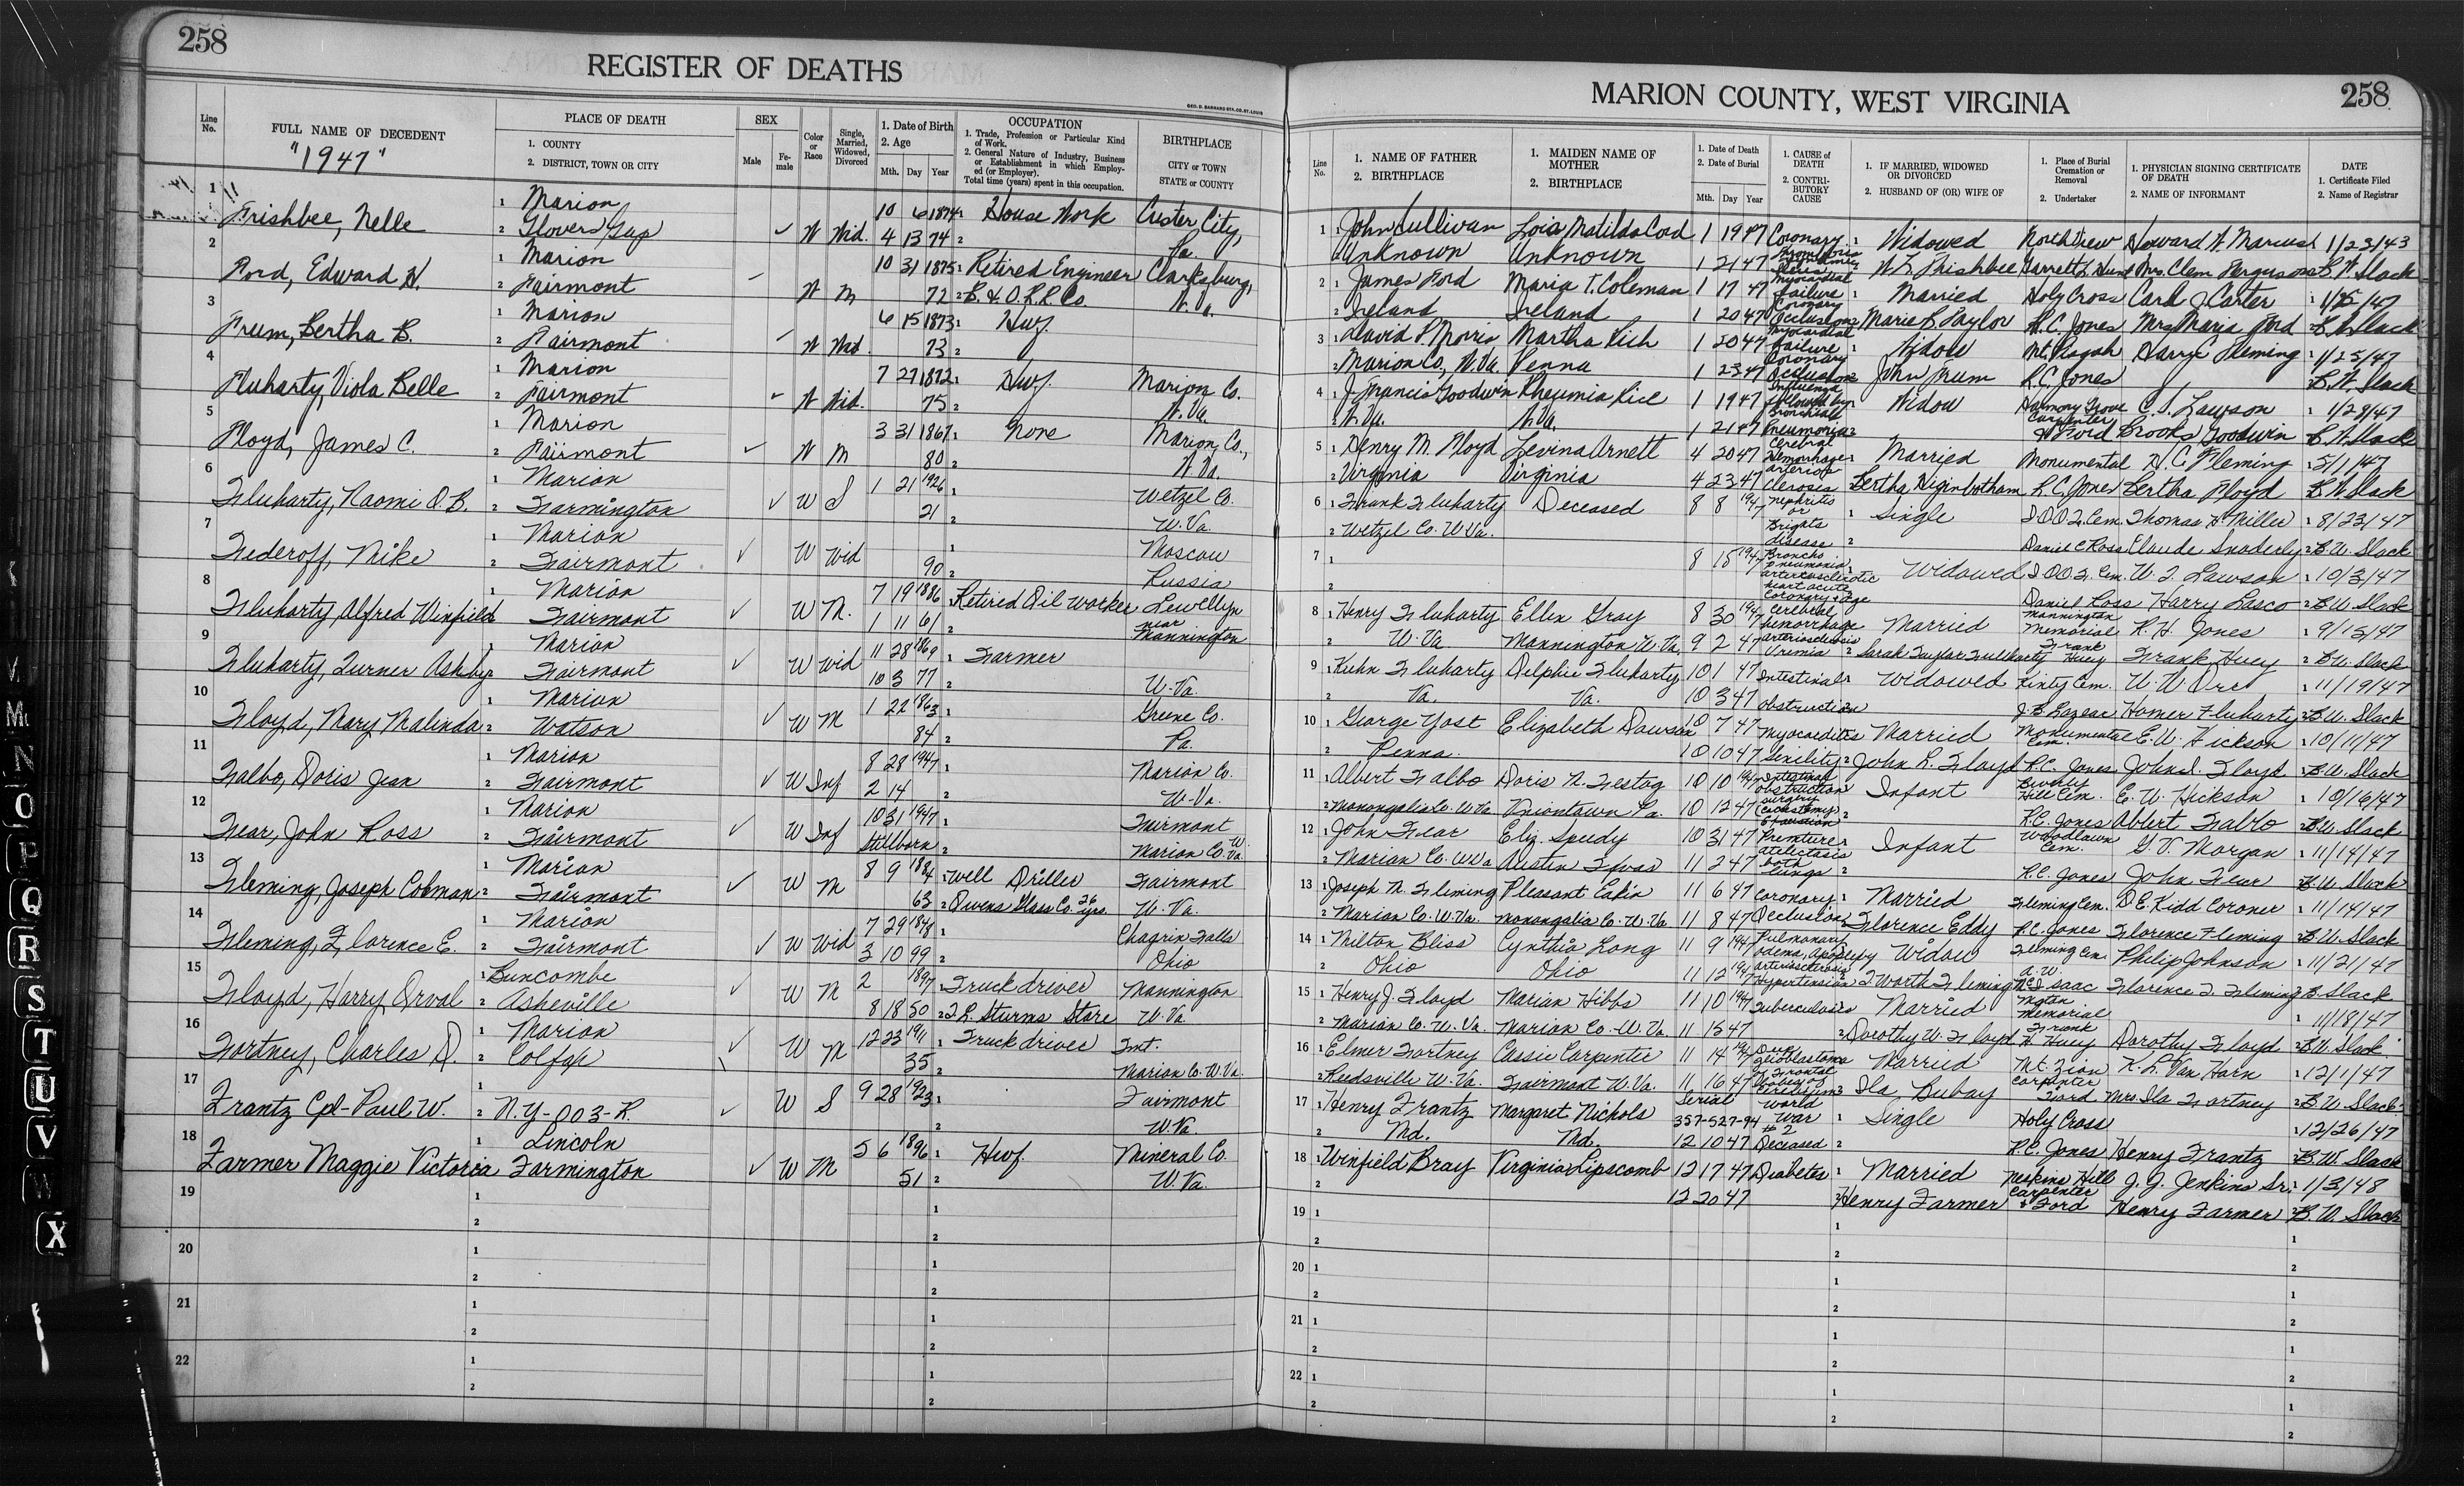 258
REGISTER OF DEATHS
GEO. D. BARNARD STA. CO. ST. LOUIS
Line No.
FULL NAME OF DECEDENT
"1947"
PLACE OF DEATH
1. COUNTY
2. DISTRICT, TOWN OR CITY
SEX
Male
Female
Color or Race
Single, Married, Widowed, Divorced
1. Date of Birth
2. Age
Mth. Day Year
OCCUPATION
1. Trade, Profession or Particular Kind of Work.
2. General Nature of Industry, Business or Establishment in which Employed (or Employer).
Total time (years) spent in this occupation.
BIRTHPLACE
CITY or TOWN
STATE or COUNTY
1 Frishbee, Nelle 1 Marion 10 6 1874 1 House Work Custer City,
2 Glovers Gap ✓ W Wid. 4 13 74 2 Pa.
2 Ford, Edward H. 1 Marion 10 31 1875 1 Retired Engineer Clarksburg,
2 Fairmont ✓ W M 72 2 B. & O. R.R. Co. W. Va.
3 Frum, Bertha B. 1 Marion 6 15 1873 1 Hwf.
2 Fairmont ✓ W Wid. 73 2
4 Fluharty, Viola Belle 1 Marion 7 27 1872 1 Hwf. Marion Co.
2 Fairmont ✓ W Wid. 75 2 W. Va.
5 Floyd, James C. 1 Marion 3 31 1867 1 None Marion Co.,
2 Fairmont ✓ W M 80 2 W. Va.
6 Fluharty, Naomi O. B. 1 Marion 1 21 1926 1 Wetzel Co.
2 Farmington ✓ W S 21 2 W. Va.
7 Federoff, Mike 1 Marion 1 Moscow
2 Fairmont ✓ W Wid 90 2 Russia
8 Fluharty, Alfred Winfield 1 Marion 7 19 1886 Retired Oil Worker Lewellyn
Fairmont ✓ W M. 1 11 61 2 near Mannington
9 Fluharty, Turner Ashby 1 Marion 11 28 1869 1 Farmer
2 Fairmont ✓ W Wid 10 3 77 2 W. Va.
10 Floyd, Mary Malinda 1 Marion 1 22 1863 1 Greene Co.
2 Watson ✓ W M 84 2 Pa.
11 Falbo, Doris Jean 1 Marion 8 28 1947 1 Marion Co.
2 Fairmont ✓ W Inf 2 14 2 W. Va.
12 Fear, John Ross 1 Marion 10 31 1947 1 Fairmont
2 Fairmont ✓ W Inf Stillborn 2 Marion Co. W. Va.
13 Fleming, Joseph Colman 1 Marion 8 9 1884 1 Well Driller Fairmont
2 Fairmont ✓ W M 63 2 Owens Glass Co. 26 yrs. W. Va.
14 Fleming, Florence E. 1 Marion 7 29 1848 1 Chagrin Falls
2 Fairmont ✓ W Wid 3 10 99 2 Ohio
15 Floyd, Harry Orval 1 Buncombe 2 1897 Truck driver Mannington
2 Asheville ✓ W M 8 18 50 2 J. L. Sturms Store W. Va.
16 Fortney, Charles D. 1 Marion 12 23 1911 1 Truck driver Fmt.
2 Colfax ✓ W M 35 2 Marion Co. W. Va.
17 Frantz Cpl-Paul W. 1 9 28 1923 1 Fairmont
2 N.Y-003-R. ✓ W S 2 W. Va
18 Farmer Maggie Victoria 1 Lincoln 5 6 1896 1 Hwf. Mineral Co.
Farmington ✓ W M 51 2 W. Va.
19 1
2
20 1
2
21 1
2
22 1
2
258
MARION COUNTY, WEST VIRGINIA
Line No.
1. NAME OF FATHER
2. BIRTHPLACE
1. MAIDEN NAME OF MOTHER
2. BIRTHPLACE
1. Date of Death
2. Date of Burial
Mth. Day Year
1. CAUSE of DEATH
2. CONTRIBUTORY CAUSE
1. IF MARRIED, WIDOWED OR DIVORCED
2. HUSBAND OF (OR) WIFE OF
1. Place of Burial Cremation or Removal
2. Undertaker
1. PHYSICIAN SIGNING CERTIFICATE OF DEATH
2. NAME OF INFORMANT
DATE
1. Certificate Filed
2. Name of Registrar
1 John Sullivan Lois Matilda Cord 1 19 47 Coronary Widowed Northview Howard W. 1/23/43
Unknown Unknown 1 21 47 Mrs. Clem Ferguson B. W. Slack
2 1 James Ford Maria T. Coleman 1 17 47 Myocardial failure Married Holy Cross Carl J. Carter 1/25/47
2 Ireland Ireland 1 20 47 Coronary Occlusion Marie B. Taylor R. C. Jones Mrs Maria Ford B. W. Slack
3 1 David P. Morris Martha Rich 1 20 47 Myocardial failure Widow Mt. Pisgah Harry C. Fleming 1/25/47
2 Marion Co., W. Va. Penna 1 23 47 Coronary Occlusion John Frum R. C. Jones B. W. Slack
4 1 J. Francis Goodwin Rheumia Rice 1 19 47 Influenza followed by Widow Harmony Grove C. L. Lawson 1/28/47
W. Va. W. Va. 1 21 47 Bronchial Pneumonia Carpenter & Ford Brooks Goodwin B. W. Slack
5 1 Henry M. Floyd Levina Arnett 4 20 47 Cerebral Hemorrhage Married Monumental H. C. Fleming 5/1/47
2 Virginia Virginia 4 23 47 arterio Clerosis Bertha Higinbotham R. C. Jones Bertha Floyd B. W. Slack
6 1 Frank Fluharty Deceased 8 8 1947 Nephritis or 1 Single I.O.O.F. Cem. Thomas H. Miller 8/23/47
2 Wetzel Co. W. Va. Brights disease 2 Daniel C Ross Claude Snoderly B. W. Slack
7 1 8 15 1947 Broncho pneumonia Widowed I.O.O.F. Cem. W. F. Lawson 10/3/47
2 arteriosclerotic heart acute Coronary + age Daniel Ross Harry Lasco B. W. Slack
8 1 Henry Fluharty Ellen Gray 8 30 1947 Cerebral hemorrhage Married Mannington Memorial R. H. Jones 9/15/47
2 W. Va. Mannington W. Va. 9 2 47 arteriosclerosis Uremia 2 Sarah Taylor Fluharty Frank Huey Frank Huey B. W. Slack
9 1 Kuhn Fluharty Delphie Fluharty 10 1 47 Intestinal Widowed Kinty Cem. W. W. Orr 11/19/47
2 Va. Va. 10 3 47 obstruction J. B. Lazear Homer Fluharty B. W. Slack
10 1 George Yost Elizabeth Dawson 10 7 47 Myocarditis Married Monumental Cem. E. W. Hickson 10/11/47
2 Penna. 10 10 47 Senility 2 John L. Floyd R.C. Jones John L. Floyd B. W. Slack
11 1 Albert Falbo Doris N. Festog 10 10 1947 Intestinal obstruction Infant Beverly Hill Cem. E. W. Hickson 10/16/47
2 Monongalia Co. W. Va. Uniontown Pa. 10 12 47 surgery R.C. Jones Albert Falbo B. W. Slack
12 1 John Fear Eliz. Speedy 10 31 47 Premture Infant Woodlawn Cem. G. V. Morgan 11/14/47
2 Marion Co. W. Va Austin 11 2 47 atelectasis both lungs 2 R.C. Jones John Fear B. W. Slack
13 1 Joseph N. Fleming Pleasant Eakin 11 6 47 Coronary 1 Married Fleming Cem. D. E. Kidd Coroner 11/14/47
2 Marion Co. W. Va. Monongalia Co. W. Va. 11 8 47 Occlusion Florence Eddy R.C. Jones Florence Fleming B. W. Slack
14 1 Milton Bliss Cynthia Long 11 9 1947 Pulmonary odema, apoplexy Widow Fleming Cem. Philip Johnson 11/21/47
2 Ohio Ohio 11 12 1947 arteriosclerosis Hypertension T. Worth Fleming Florence F. Fleming B. Slack
15 1 Henry J. Floyd Marian Hibbs 11 10 1947 Tuberculosis Married Mgtn Memorial 11/18/47
2 Marion Co. W. Va. Marion Co. W. Va. 11 13 47 2 Dorothy W. Floyd Frank H Huey Dorothy Floyd B. W. Slack
16 1 Elmer Fortney Cassie Carpenter 11 14 1947 Married Mt. Zion K. L. Van Horn 12/1/47
2 Reedsville W. Va. Fairmont W. Va. 11 16 47 Ila, Bubay Carpenter Ford Mrs Ila Fortney B. W. Slack
17 1 Henry Frantz Margaret Nichols Serial 357-527-94 World War # 2 1 Single Holy Cross 12/26/47
2 Md. Md. 12 10 47 Deceased 2 R.C. Jones Henry Frantz B. W. Slack
18 1 Winfield Bray Virginia Lipscomb 12 17 47 Diabetes 1 Married Meskins Hill J. J. Jenkins Sr. 1/3/48
2 12 20 47 2 Henry Farmer Carpenter & Ford Henry Farmer B. W. Slack
19 1
2
20 1
2
21 1
2
22 1
2
K
M
N
O
P
Q
R
S
T
U
V
W
X